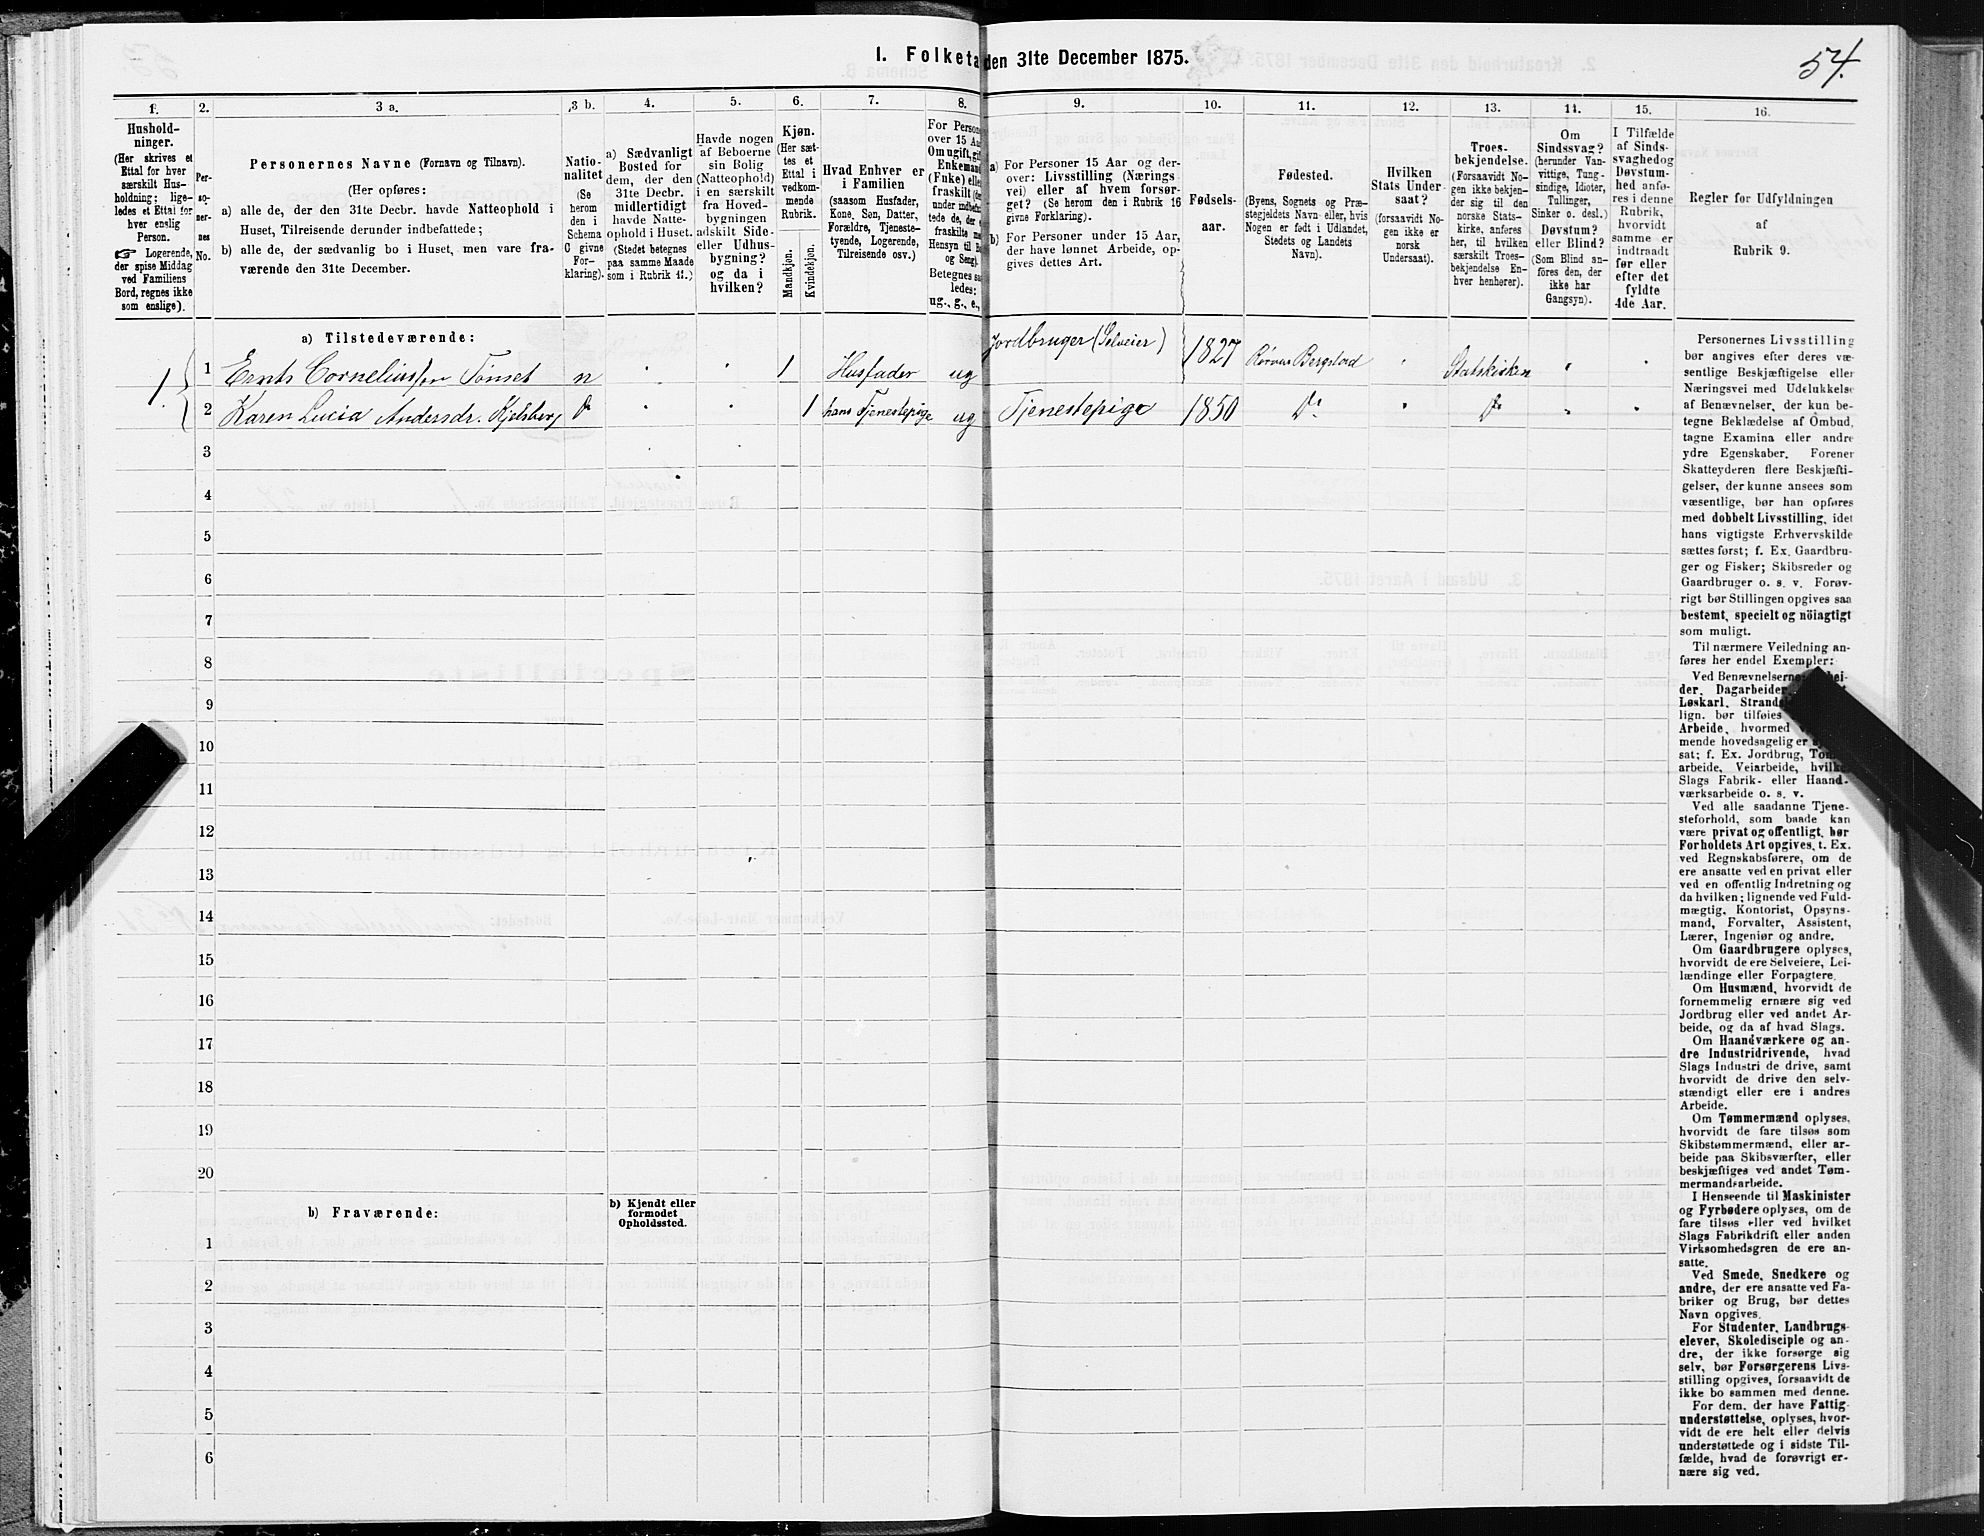 I. Folketa den 31te December 1875.
54.
1.
Hushold-
ninger.
(Her skrives et
Ettal for hver
særskilt Hus-
holdning; lige-
ledes et Ettal for
hver enslig
Person.
☞ Logerende,
der spise Middag
ved Familiens
Bord, regnes ikke
som enslige).
2.
Per-
so-
ner-
nes
No.
3 a.
Personernes Navne (Fornavn og Tilnavn).
(Her opføres:
a) alle de, der den 31te Decbr. havde Natteophold i
Huset, Tilreisende derunder indbefattede;
b) alle de, der sædvanlig bo i Huset, men vare fra-
værende den 31te December.
3 b.
Natio-
nalitet
(Se
herom
den i
Schema
C givne
For-
klaring).
4.
a) Sædvanligt
Bosted for
dem, der den
31te Decbr.
midlertidigt
havde Natte-
ophold i Huset.
(Stedet betegnes
paa samme Maade
som i Rubrik 11.)
5.
Havde nogen
af Beboerne
sin Bolig
(Natteophold)
i en særskilt
fra Hoved-
bygningen
adskilt Side-
eller Udhus-
bygning?
og da i
hvilken?
6.
Kjøn.
(Her sæt-
tes et
Ettal i
vedkom-
mende
Rubrik.
Mandkjøn.
Kvindekjøn.
7.
Hvad Enhver er
i Familien
(saasom Husfader,
Kone, Søn, Datter,
Forældre, Tjeneste-
tyende, Logerende,
Tilreisende osv.)
8.
For Persone
over 15 Aa
Om ugift, gif
Enkemand
(Fuke) elle
fraskilt (de
under indbefat
tede de, der e
fraskilte me
Hensyn til Bo
og Seng).
Betegnes saa
ledes:
ug., g., e.,
9.
a) For Personer 15 Aar og der-
over: Livsstilling (Nærings
vei) eller af hvem forsør-
get? (Se herom den i Rubrik 16
givne Forklaring).
b) For Personer under 15 Aar,
der have lønnet Arbeide, op-
gives dettes Art.
10.
Fødsels-
aar.
11.
Fødested.
(Byens, Sognets og Præ-
stegjeldets Navn eller, hvis
Nogen er født i Udlandet,
Stedets og Landets
Navn).
12.
Hvilken
Stats Under-
saat?
(forsaavidt No-
gen ikke er
norsk
Undersaat).
13.
Troes-
bekjendelse.
(Forsaavidt No-
gen ikke bekjen-
der sig til den
norske Stats-
kirke, anføres
her, til hvilken
særskilt Troes-
bekjendelse En-
hver henhører).
14.
Om
Sindssvag?
(herunder Van-
vittige, Tung-
sindige, Idioter,
Tullinger,
Sinker o. desl.)
Døvstum?
eller Blind?
(Som Blind an-
føres den, der
ikke har
Gangsyn).
15.
I Tilfælde
af Sinds-
svaghedog
Døvstum-
hed anfø-
res i denne
Rubrik,
hvorvidt
samme er
indtraadt
før eller
efter det
fyldte
4de Aar.
16.
Regler for Udfyldningen
af
Rubrik 9.
a) Tilstedeværende:
1. 1 Ernts Corneliussen Tønset n " " 1 Husfader ug Jordbruger (Selveier) 1827 Røraas Bergstad " Statskirken " "
2 Karen Lucia Andersdr. Kjelsberg do " " 1 hans Tjenestepige ug Tjenestepige 1850 Do " Do " "
3
4
5
6
7
8
9
10
11
12
13
14
15
16
17
18
19
20
b) Fraværende:
b) Kjendt eller
formodet
Opholdssted.
1
2
3
4
5
6
Personernes Livsstilling
bør angives efter deres væ-
sentlige Beskjæftigelse eller
Næringsvei med Udelukkelse
af Benævnelser, der kun be-
tegne Beklædelse af Ombud,
tagne Examina eller andre
ydre Egenskaber. Forener
Skatteyderen flere Beskjæfti-
gelser, der kunne ansees som
væsentlige, bør han opføres
med dobbelt Livsstilling, idet
hans vigtigste Erhvervskilde
sættes først; f. Ex. Gaardbru-
ger og Fisker; Skibsreder og
Gaardbruger o. s. v. Forøv-
rigt bør Stillingen opgives saa
bestemt, specielt og nöiagtigt
som muligt.
Til nærmere Veiledning an-
føres her endel Exempler:
Ved Benævnelserne: bei-
der, Dagarbeider,
Løskarl, Strands
lign. bør tilføies
Arbeide, hvormed
mende hovedsagelig er
sat; f. Ex. Jordbrug, Tøm
arbeide, Veiarbeide, hvilke
Slags Fabrik- eller Haand-
værksarbeide o. s. v.
Ved alle saadanne Tjene-
steforhold, som baade kan
være privat og offentligt, bør
Forholdets Art opgives, t. Ex.
ved Regnskabsførere, om de
ere ansatte ved en privat eller
ved en offentlig Indretning og
da hvilken; lignende ved Fuld-
mægtig, Kontorist, Opsyns-
mand, Forvalter, Assistent,
Lærer, Ingeniør og andre.
Om Gaardbrugere oplyses,
hvorvidt de ere Selveiere, Lei-
lændinge eller Forpagtere.
Om Husmænd, hvorvidt de
fornemmelig ernære sig ved
Jordbrug eller ved andet Ar-
beide, og da af hvad Slags.
Om Haandværkere og an-
dre Industridrivende, hvad
Slags Industri de drive, samt
hvorvidt de drive den selv-
stændigt eller ere i andres
Arbeide.
Om Tømmermænd oplyses,
hvorvidt de fare tilsøs som
Skibstømmermænd, eller ar-
beide paa Skibsværfter, eller
beskjæftiges ved andet Tøm-
mermandsarbeide.
I Henseende til Maskinister
og Fyrbødere oplyses, om de
fare tilsøs eller ved hvilket
Slags Fabrikdrift eller anden
Virksomhedsgren de ere an-
satte.
Ved Smede, Snedkere og
andre, der ere ansatte ved Fa-
briker og Brug, bør dettes
Navn opgives.
For Studenter, Landbrugs-
elever, Skoledisciple og an-
dre, der ikke forsørge sig
selv, bør Forsørgerens Livs-
stilling opgives, forsaavidt de
ikke bo sammen med denne.
For dem, der have Fattig-
understøttelse, oplyses, hvor-
vidt de ere helt eller delvis
understøttede og i sidste Til-
fælde, hvad de forøvrigt er-
nære sig ved.